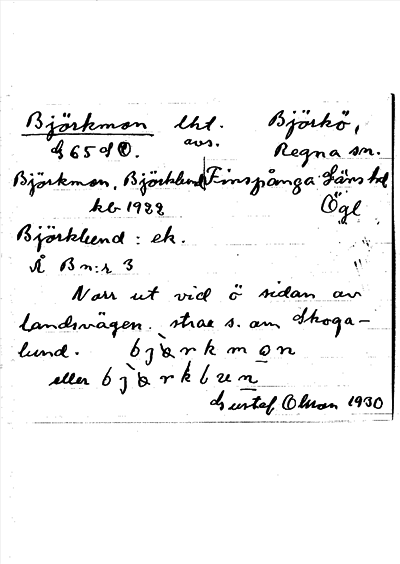 Björkmon lht. Björkö,
avs.
G 65 d Ö. Regna sn.
Björkmon, Björklund Finspånga Läns hd
kb 1922 Ögl
Björklund : ek.
Å B n:r 3
Norr ut vid ö sidan av
landsvägen. strax s. om Skoga-
lund. bjärkmon
eller bjärklun
Gustaf Olsson 1930